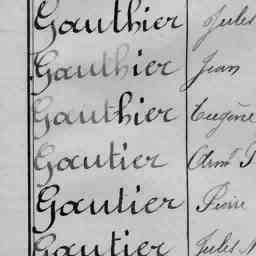 Gauthier Jules
Gauthier Jean
Gauthier Eugène
Gautier
Gautier Pierre
Gautier Jules